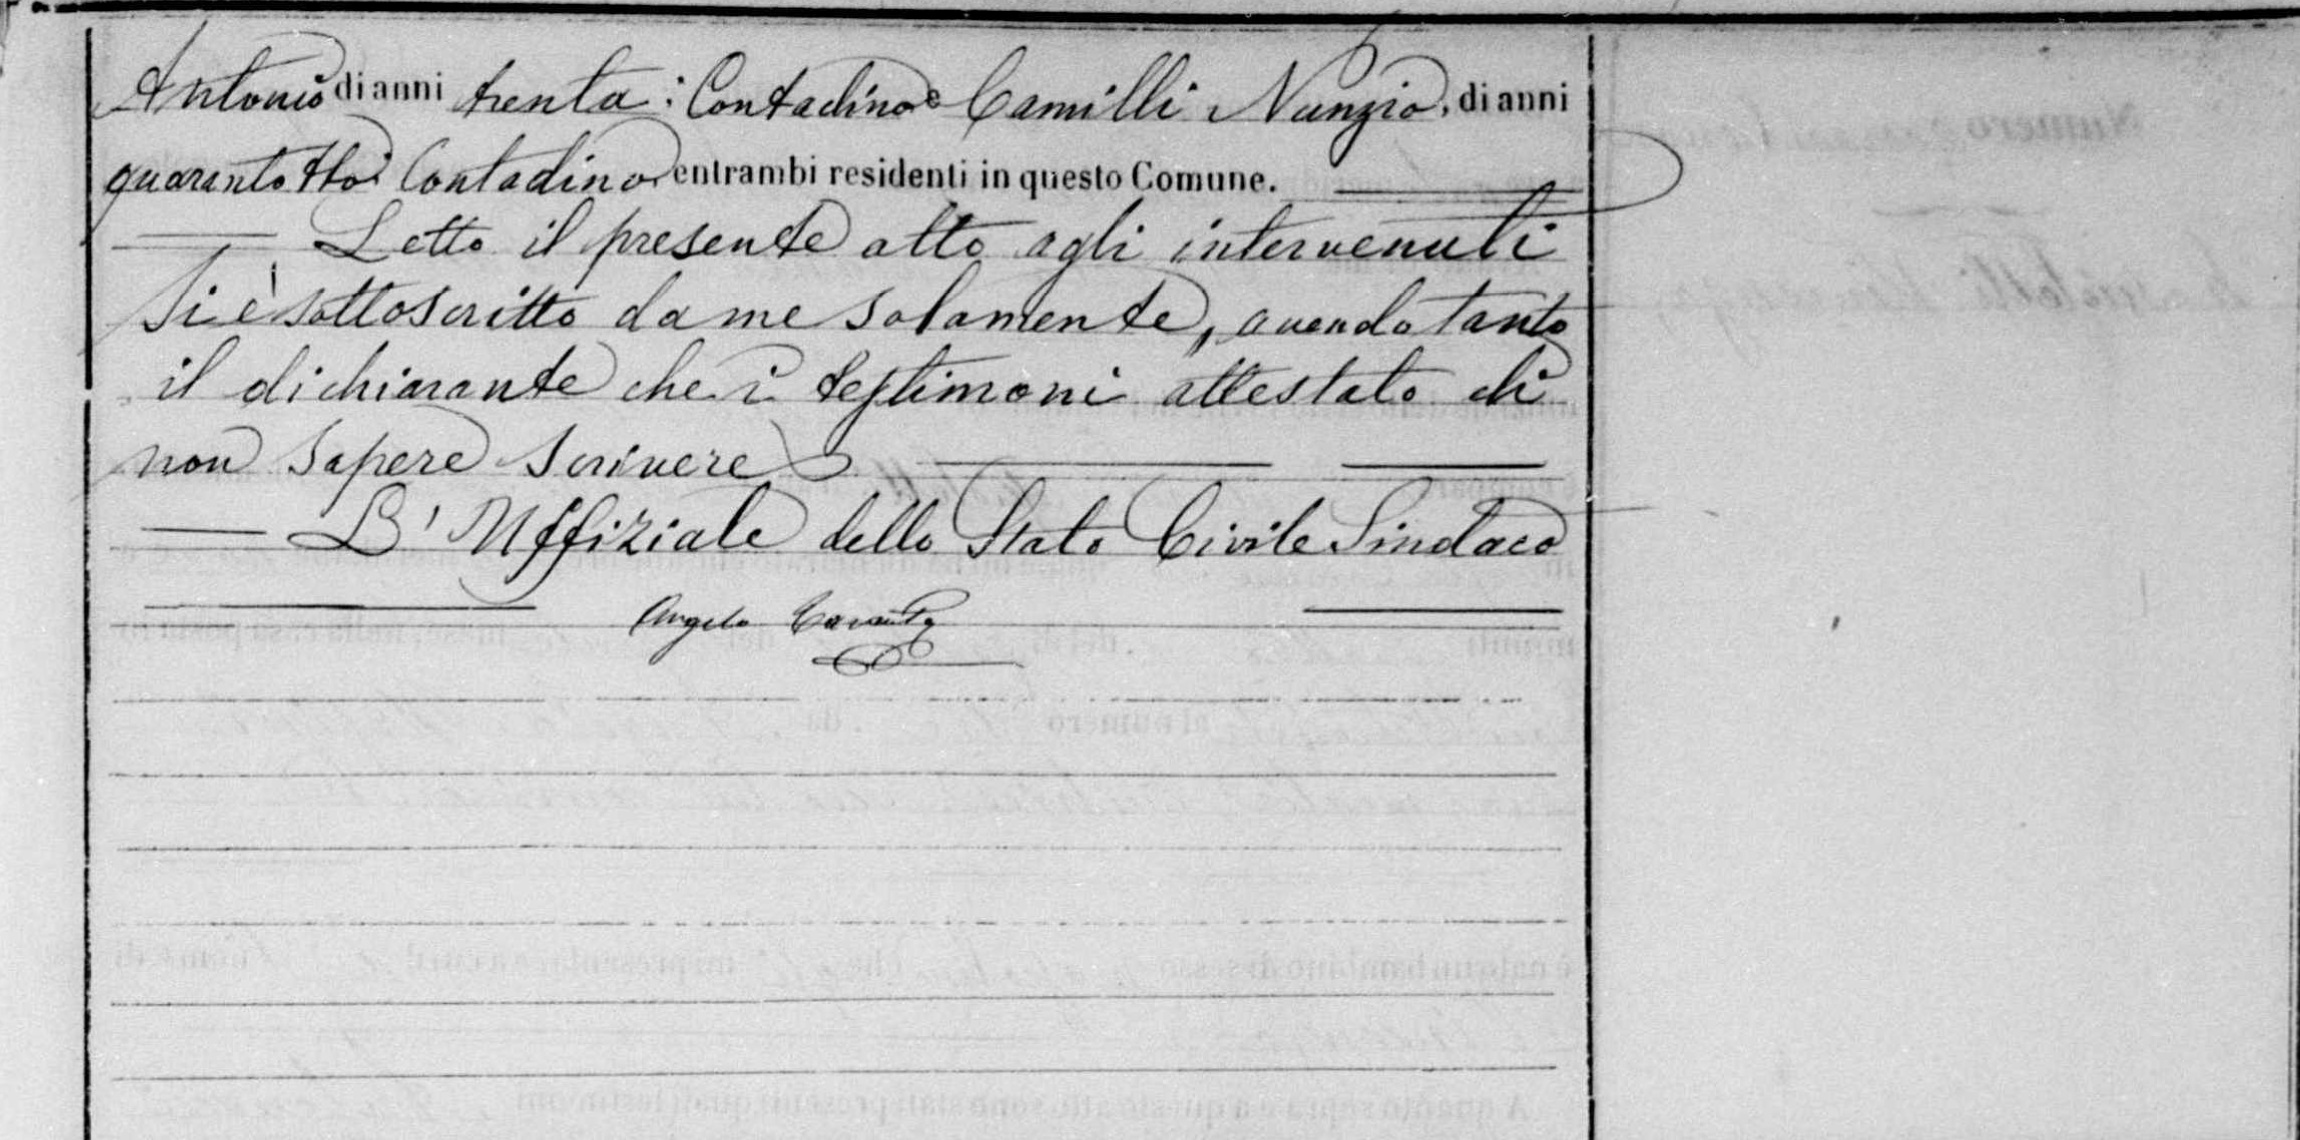 Antonio di anni trenta: Contadino e Camilli Nunzio, di anni
quarantotto Contadino entrambi residenti in questo Comune.
Letto il presente atto agli intervenuti
si è sottoscritto da me solamente, avendo tanto
il dichiarante che i testimoni attestato di
non sapere scrivere
L'Uffiziale dello Stato Civile Sindaco
Angelo